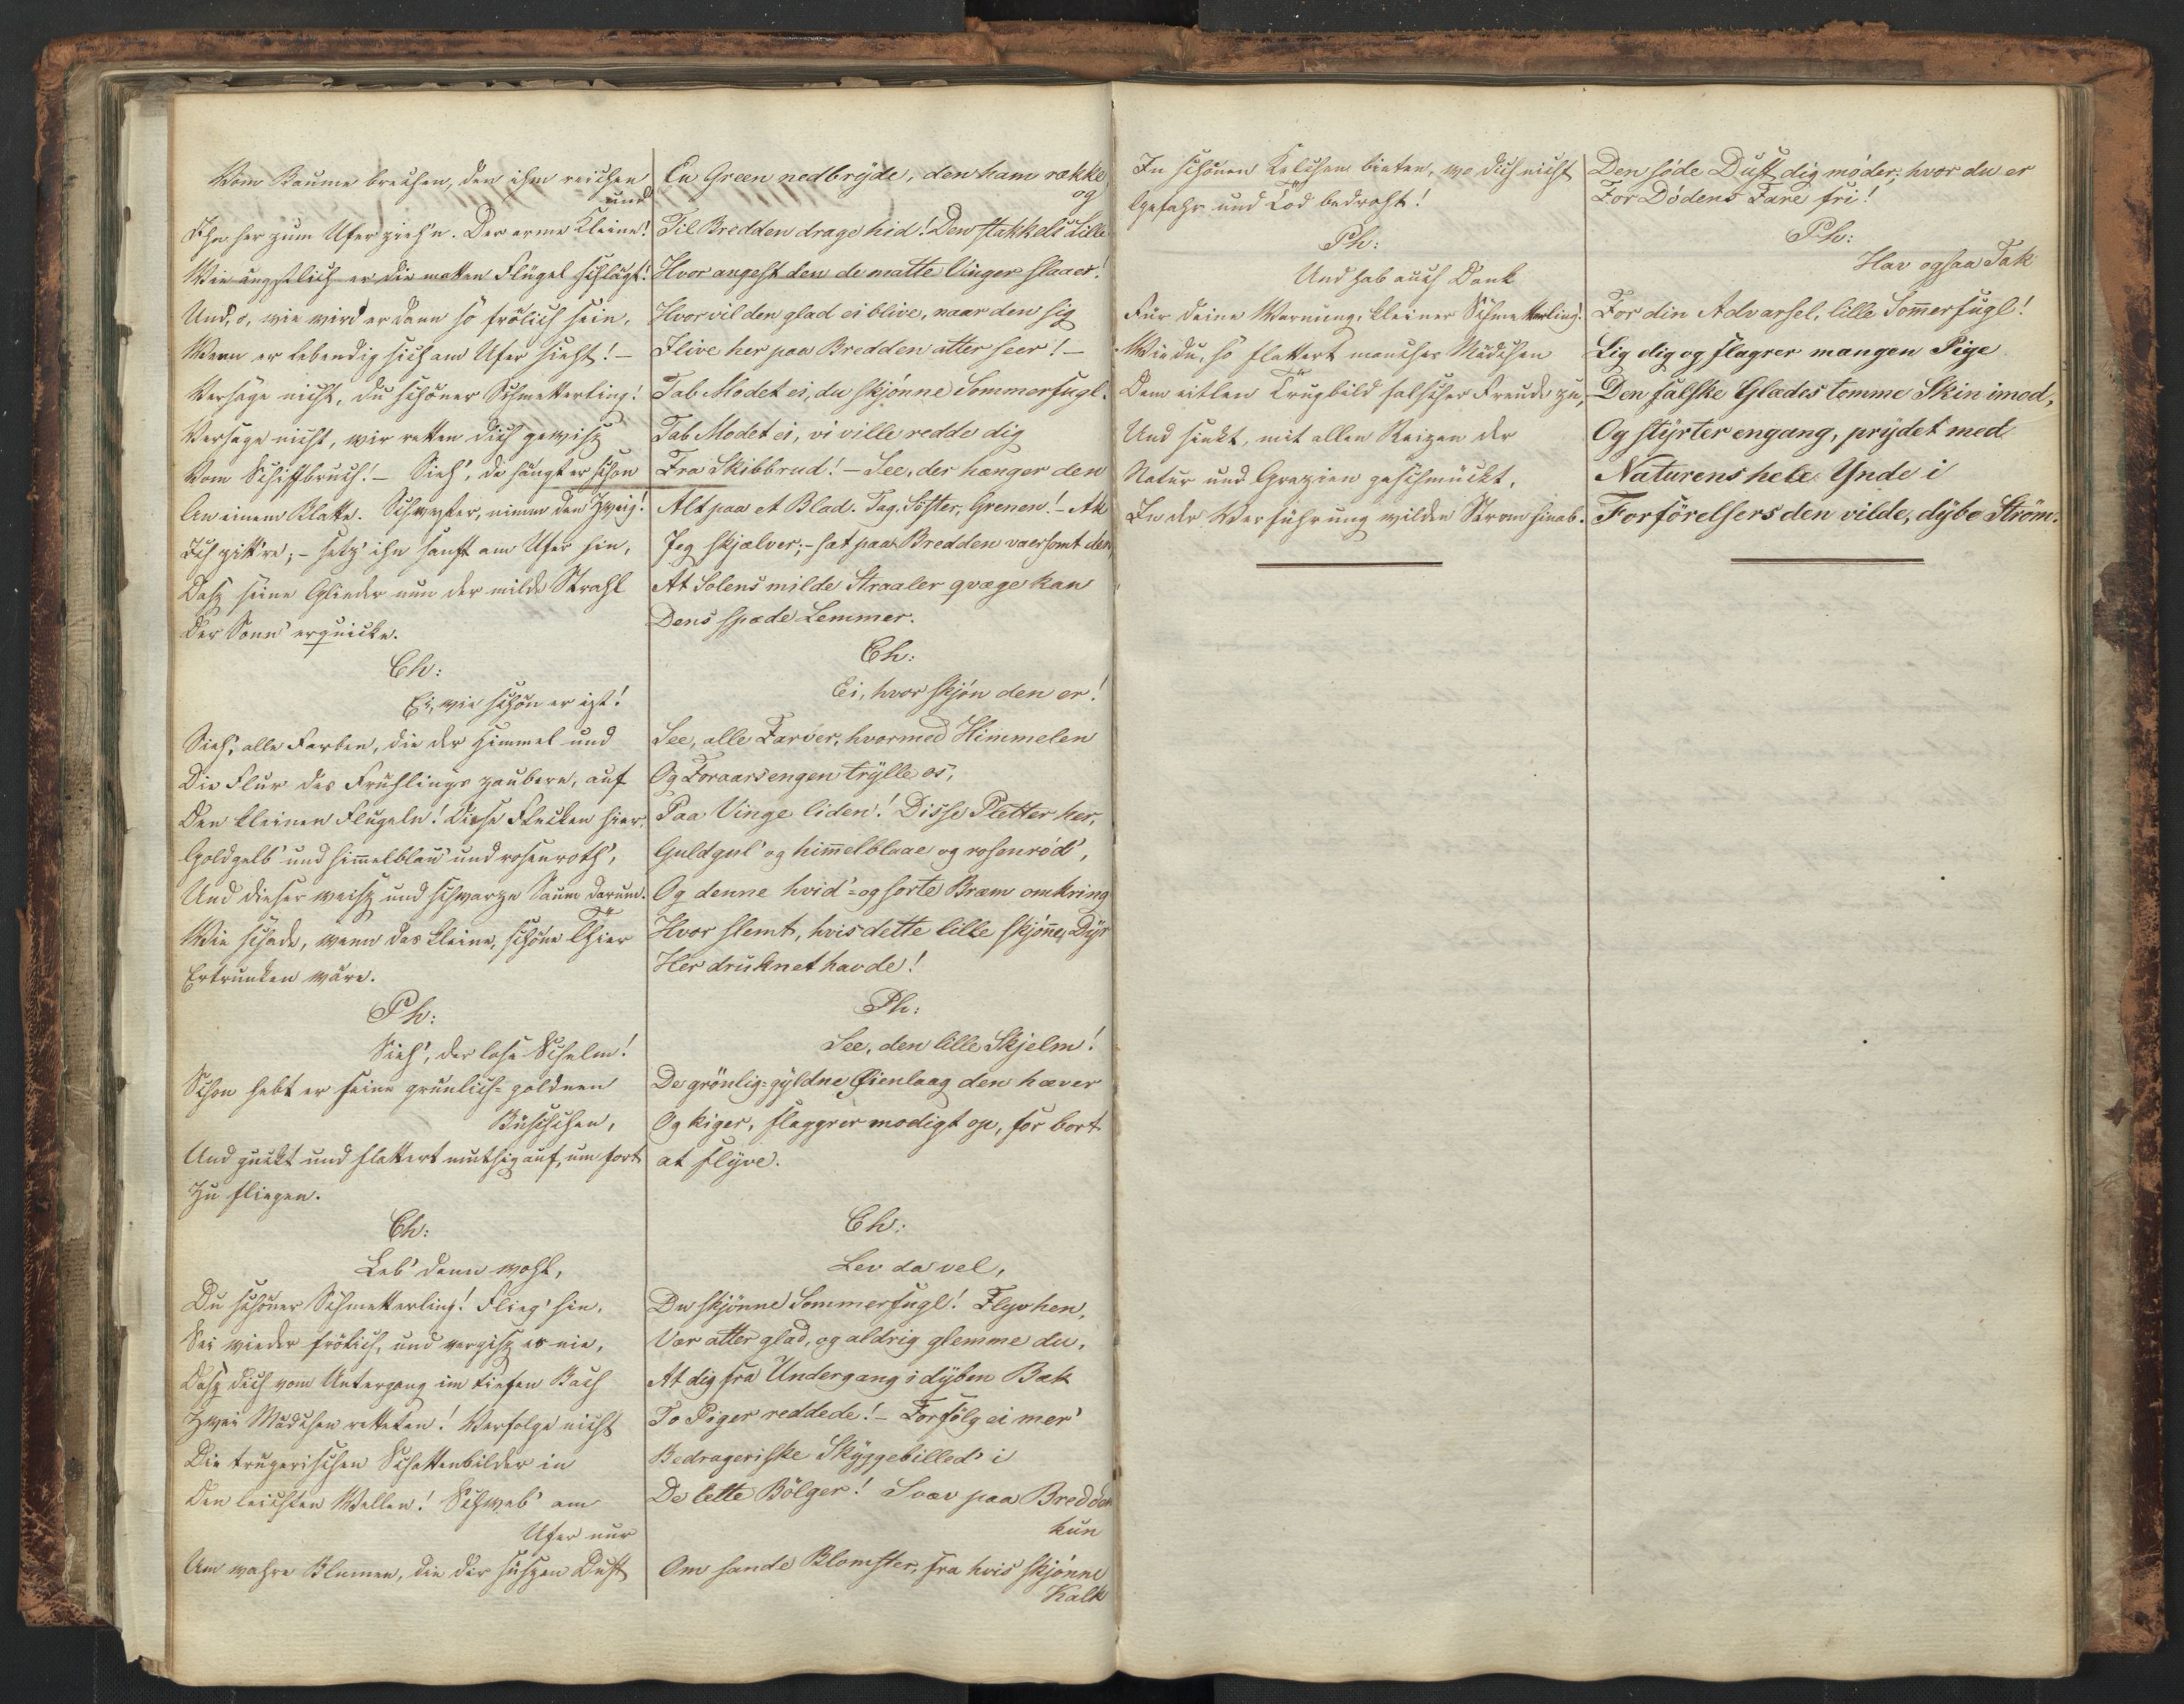 Vom Baume brechen, den ihm reichen
und
Ihn her zum Ufer zieh'n. Der arme Kleine!
Wie ängstlich er die matten Flügel schlägt!
Und, o, wie wird er dann so frölich sein,
Wenn er lebendig sich am Ufer sieht! –
Verzage nicht, du schöner Schmetterling!
Verzage nicht, wir retten dich gewisz
Vom Schiffbruch! – Sieh', da hängt er schon
An einem Blatte. Schwester, nimm den Zweig!
Ich zitt're; – setz' ihn sanft am Ufer hin,
Dasz seine Glieder nun der milde Strahl
Der Sonn' erquicke.
Ch:
Ei, wie schön er izt!
Sieh', alle Farben, die der Himmel und
Die Flur des Frühlings zaubern, auf
Den kleinen Flügeln! Diese Flecken hier,
Goldgelb' und himmelblau' und rosenroth',
Und dieser weisz und schwarze Saum darum.
Wie schade, wenn das kleine, schöne Thier
Ertrunken wäre.
Ph:
Sieh', der lose Schelm!
Schon hebt er seine grünlich-goldnen
Büschchen,
Und guckt und flattert muthig auf, um fort
Zu fliegen.
Ch:
Leb' denn wohl,
Du schöner Schmetterling! Flieg' hin,
Sei wieder frölich, und vergisz es nie,
Dasz dich vom Untergang im tiefen Bach
Zwei Mädchen retteten! Verfolge nicht
Die trügerischen Schattenbilder in
Den leichten Wellen! Schweb' am
Ufer nur
Um wahre Blumen, die dir süszen Duft
En Green nedbryde, den ham række
og
Til Bredden drage hid! Den stakkels Lille
Hvor angest den de matte Vinger slaaer!
Hvor vil den glad ei blive, naar den sig
Ilive her paa Bredden atter seer! –
Tab Modet ei, du skjønne Sommerfugl!
Tab Modet ei, vi ville redde dig
Fra Skibbrud! – See, der hænger den
Alt paa et Blad. Tag, Søster, Grenen! – Ak
Jeg skjælver; – sæt paa Bredden vaersomt den,
At Solens milde Straaler qvæge kan
Dens spæde Lemmer.
Ch:
Ei, hvor skjøn den er!
See, alle Farver, hvormed Himmelen
Og Foraarsengen trylle os,
Paa Vinge liden! Disse Pletter her,
Guldgul' og himmelblaae og rosenrød',
Og denne hvid'= og sorte Bræm omkring
Hvor slemt, hvis dette lille skjønne Dyr
Her druknet havde!
Ph:
See, den lille Skjelm!
De grønlig=gyldne Øienlaag den hæver
Og kiger, flaggrer modigt op, for bort
at flyve.
Ch:
Lev da vel,
Du skjønne Sommerfugl! Flyv hen,
Vær atter glad, og aldrig glemme du,
At dig fra Undergang i dyben Bæk
To Piger reddede! – Forfølg ei mer'
Bedrageriske Skyggebilled' i
De lette Bølger! Svæv paa Bredden
kun
Om sande Blomster, fra hvis skjønne
Kalk
In schönen Kelchen bieten, wo dich nicht
Gefahr und Tod bedroht!
Ph:
Und hab auch Dank
Für deine Warnung, kleiner Schmetterling!
Wie du, so flattert manches Mädchen
Dem eitlen Trugbild falscher Freude zu,
Und sinkt, mit allen Reizen der
Natur und Grazien geschmückt,
In der Verführung wilden Strom hinab.
Den søde Duft dig møder, hvor du er
For Dødens Fare fri!
Ph:
Hav ogsaa Tak
For din Advarsel, lille Sommerfugl!
Lig dig og flagrer mangen Pige
Den falske Glædes tomme Skin imod,
Og styrter engang, prydet med
Naturens hele Ynde i
Forførelsers den vilde, dybe Strøm.